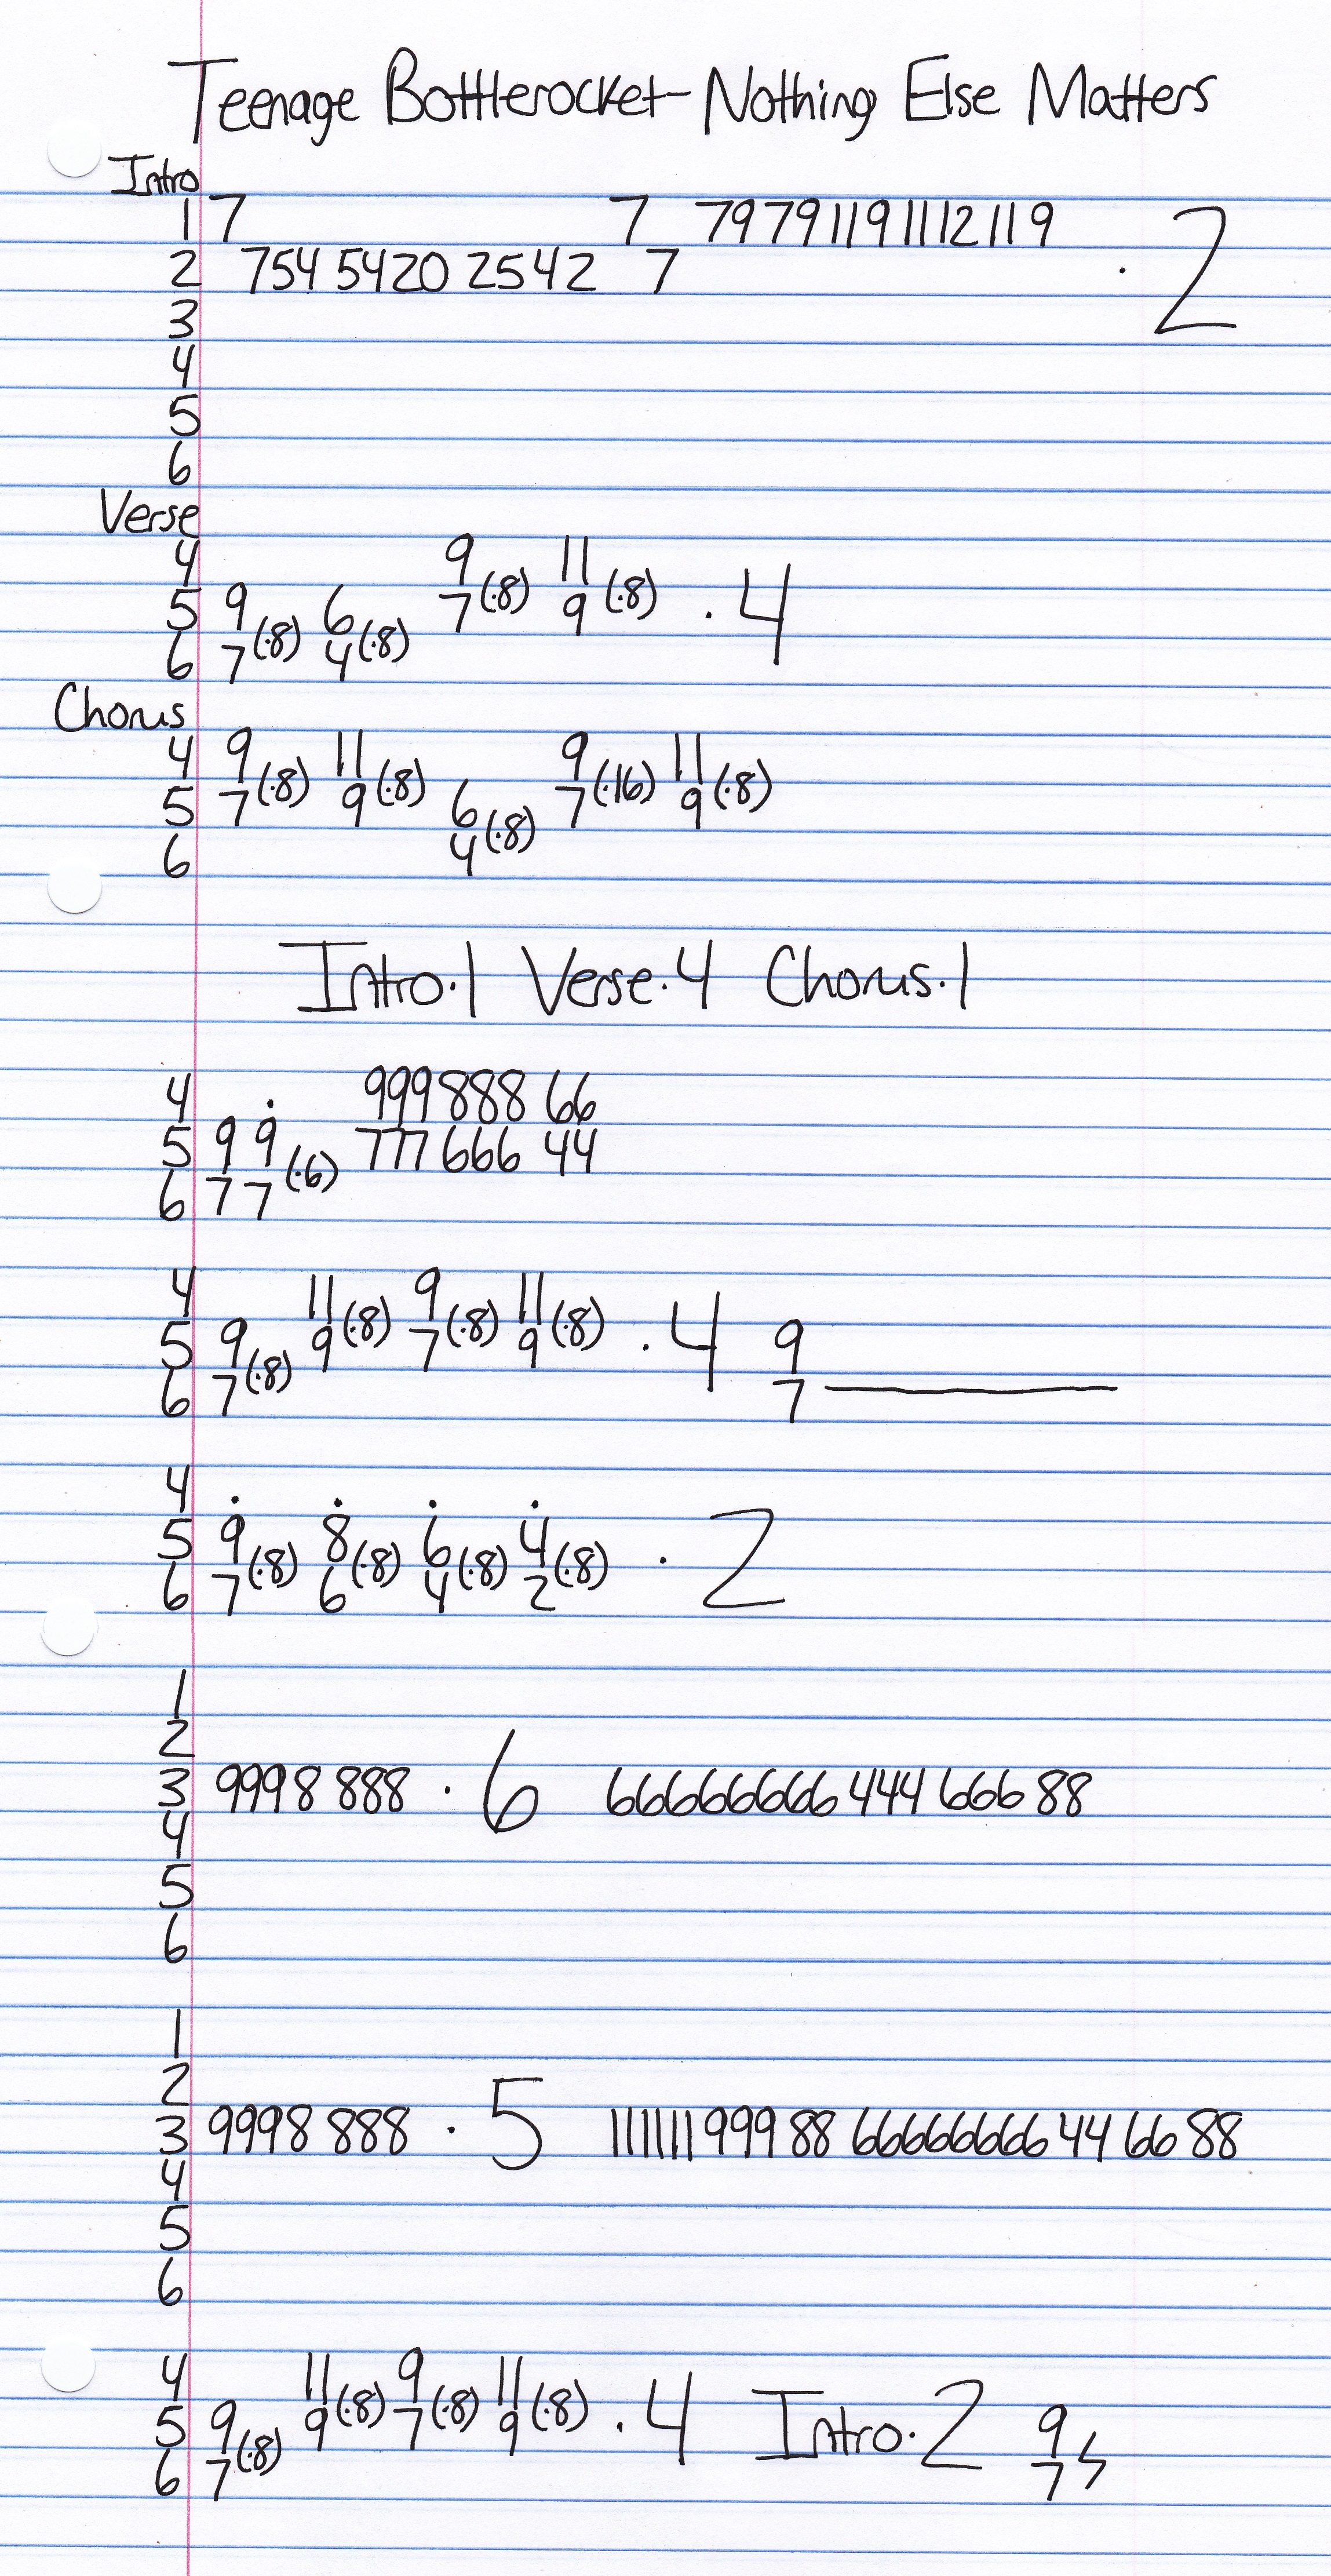 Teenage Bottlerocket-Nothing Else Matters
Intro
1 7 7 79 79 119 1112 119
2 754 5420 2542 7 · 2
3
4
5
6
Verse
4 9 11
5 9 6 7(·8) 9(·8) · 4
6 7(·8) 4(·8)
Chorus
4 9 11 9 11
5 7(·8) 9(·8) 6 7(·16) 9(·8)
6 4(·8)
Intro·1 Verse·4 Chorus·1
4 · 999 888 66
5 9 9 777 666 44
6 7 7(·6)
4 11 9 11
5 9 9(·8) 7(·8) 9(·8) · 4 9
6 7(·8) 7
4 · · · ·
5 9 8 6 4 · 2
6 7(·8) 6(·8) 4(·8) 2(·8)
1
2
3 9998 888 · 6 66666666 444 666 88
4
5
6
1
2
3 9998 888 · 5 111111 999 88 66666666 44 66 88
4
5
6
4 11 9 11
5 9 9(·8) 7(·8) 9(·8) · 4 Intro·2 9
6 7(·8) 7